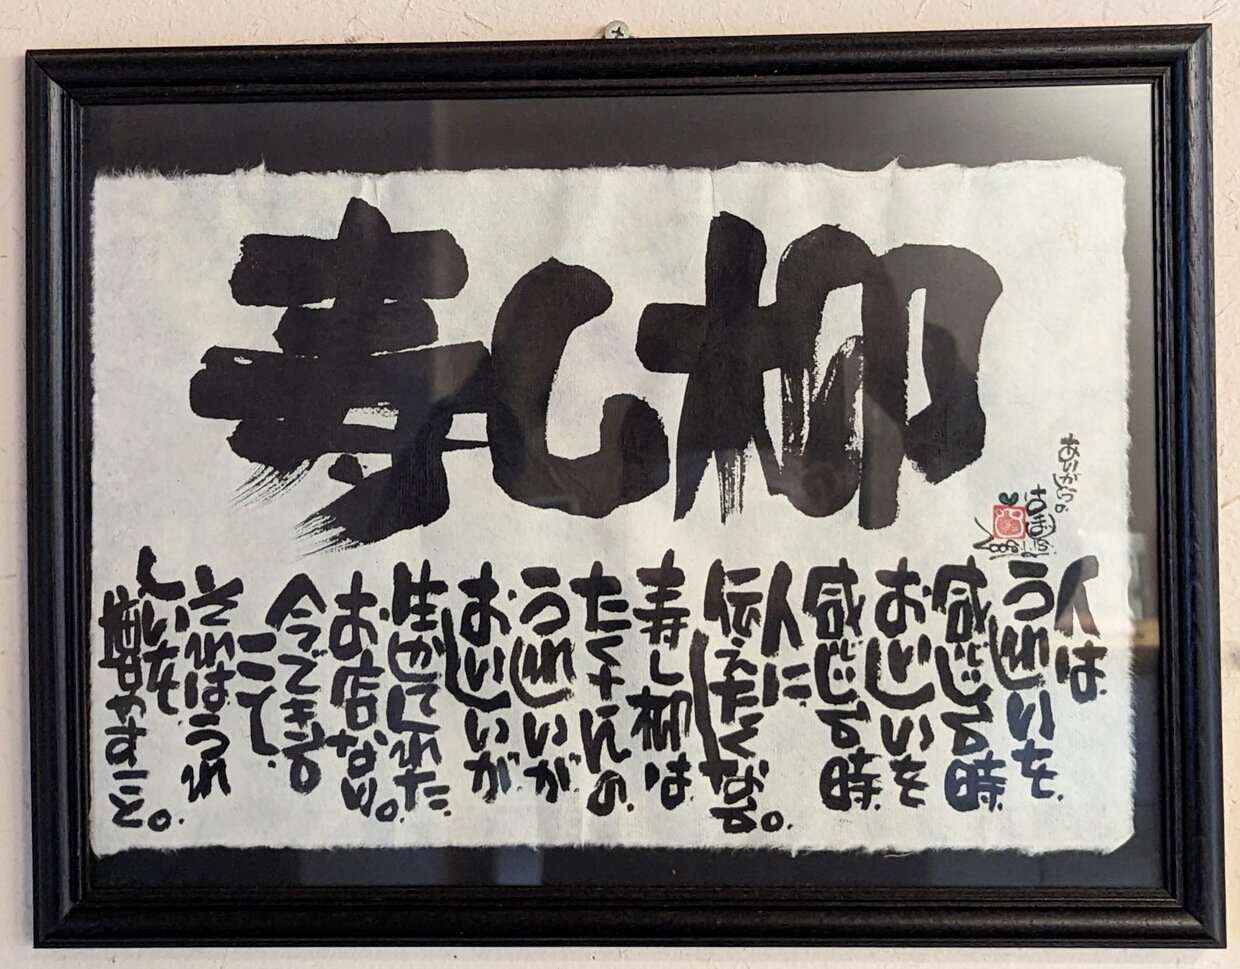 寿し柳
人は
うれしいを
感じる時
おいしいを
感じる時
人に
伝えたくなる。
寿し柳は
たくさんの
うれしいが
おいしいが
お店なり。
今できる
こと、
それはうれ
しいを
増やすこと。
ありがとうの
2008.1.15.